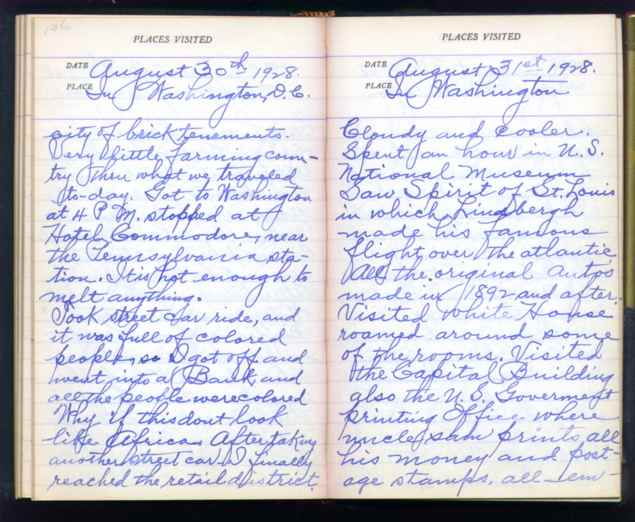 PLACES VISITED
DATE August 30th 1928.
PLACE In Washington, D.C.
city of brick tenements.
Very little farming coun-
try then what we traveled
to-day. Got to Washington
at 4 P.M. stopped at
Hotel Commodore, near
the Pennsylvania sta-
tion. It is hot enough to
melt anything.
Took street car ride, and
it was full of colored
people, so I got off and
went into a Bank, and
all the people were colored
Why if this dont look
like Africa. After taking
another street car I finally
reached the retail district.
PLACES VISITED
DATE August 31st 1928.
PLACE In Washington
Cloudy and cooler.
Spent an hour in U.S.
National Museum
Saw Spirit of St. Louis
in which Lindbergh
made his famous
flight over the atlantic
All the original autos
made in 1892 and after.
Visited White House
roamed around some
of the rooms. Visited
the Capital Building
also the U.S. Goverment
printing Office where
uncle sam prints all
his money and post-
age stamps, all em-